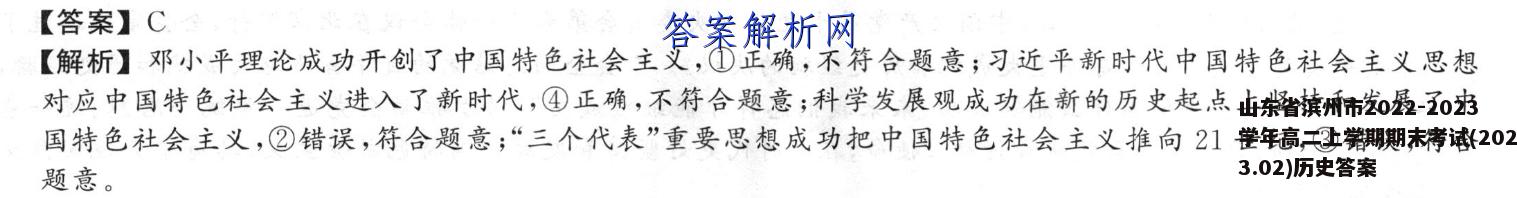 【答案】C
答案解析网
【解析】邓小平理论成功开创了中国特色社会主义,①正确,不符合题意;习近平新时代中国特色社会主义思想
对应中国特色社会主义进入了新时代,④正确,不符合题意;科学发展观成功在新的历史起点上坚持和发展了中
国特色社会主义,②错误,符合题意;“三个代表”重要思想成功把中国特色社会主义推向 21
题意。
山东省滨州市2022-2023
学年高二上学期期末考试(202
3.02)历史答案